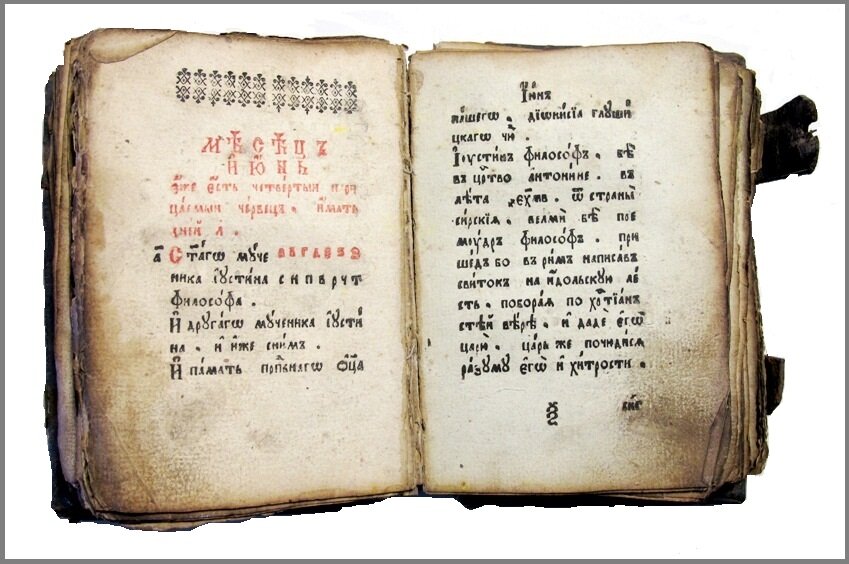 мѣсѧцъ
їю́нь
и҆́же є҆́сть четве́ртыи нари
цаемыи че́рвецъ . и҆́мать
дні́й л҃ .
а҃ Ст҃а́гѡ мꙋче а в г д е ѕ з
ника і҆ꙋсти́на с н п в р ч т
философа .
И҆ дрꙋга́гѡ мꙋ́ченика і҆ꙋсти
на . и҆ и҆́же сни́мъ .
И҆ па́мать прпⷣбнагѡ ѻ҆ц҃а
Їюнъ
на́шегѡ . дїѡни́сїа глꙋши
цкагѡ чю .
І҆ꙋсти́нъ филосо́фъ . бѣ̀
въ црⷭ҇тво а҆нтони́не . въ
лѣ́та . ѿ страны̀
сирскїѧ . велмѝ бѣ̀ пре
мꙋ́дръ филосо́фъ . при
ше́дъ бо въ ри́мъ написа́въ
сви́токъ на и҆́дольскꙋю ле́
сть . побора́ѧ по хрⷭ҇тїа́н
стѣ́й вѣ́рѣ . и҆ дадѐ є҆гѡ̀
царю̀ . ца́рь же почюди́сѧ
ра́зꙋмꙋ є҆гѡ̀ и҆ хи́трости .